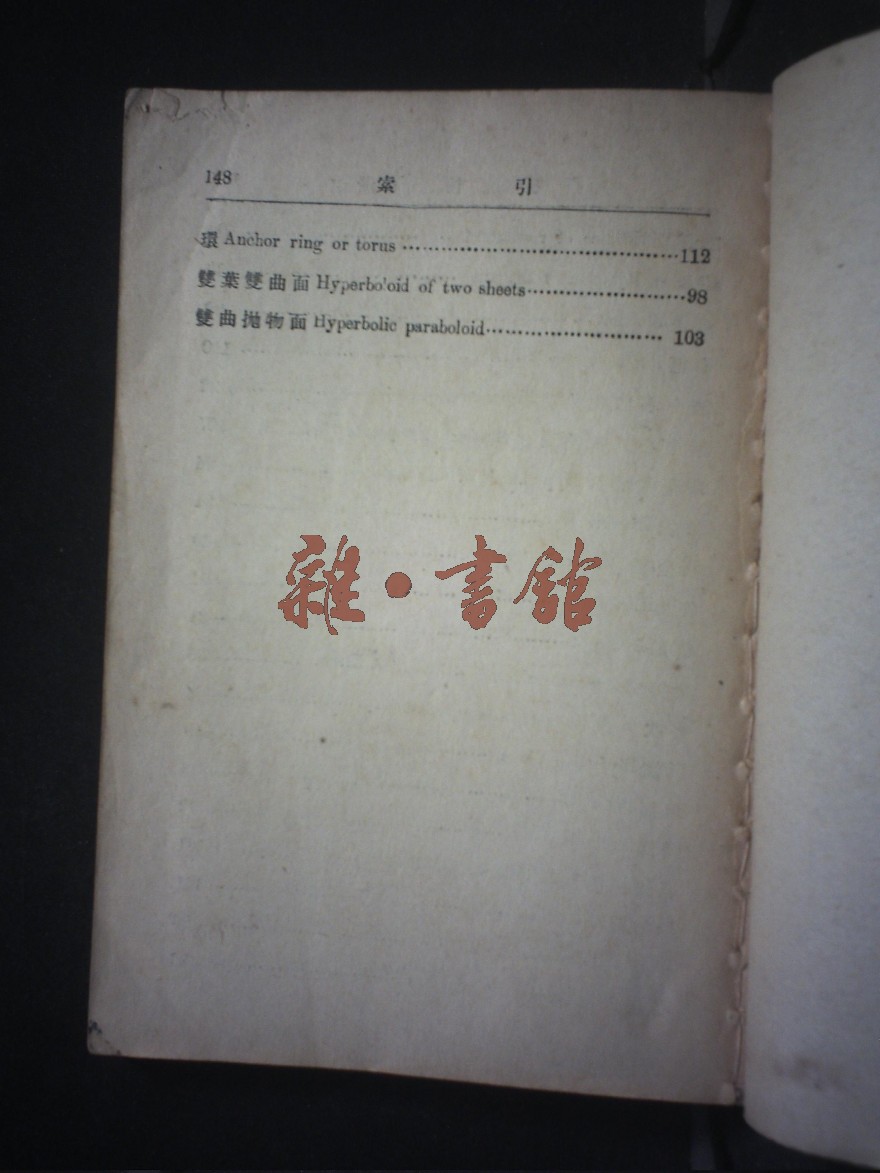 148 索 引
環 Anchor ring or torus ……………………………………112
雙葉雙曲面 Hyperboloid of two sheets……………………98
雙曲拋物面 Hyperbolic paraboloid……………………… 103
雜·書館